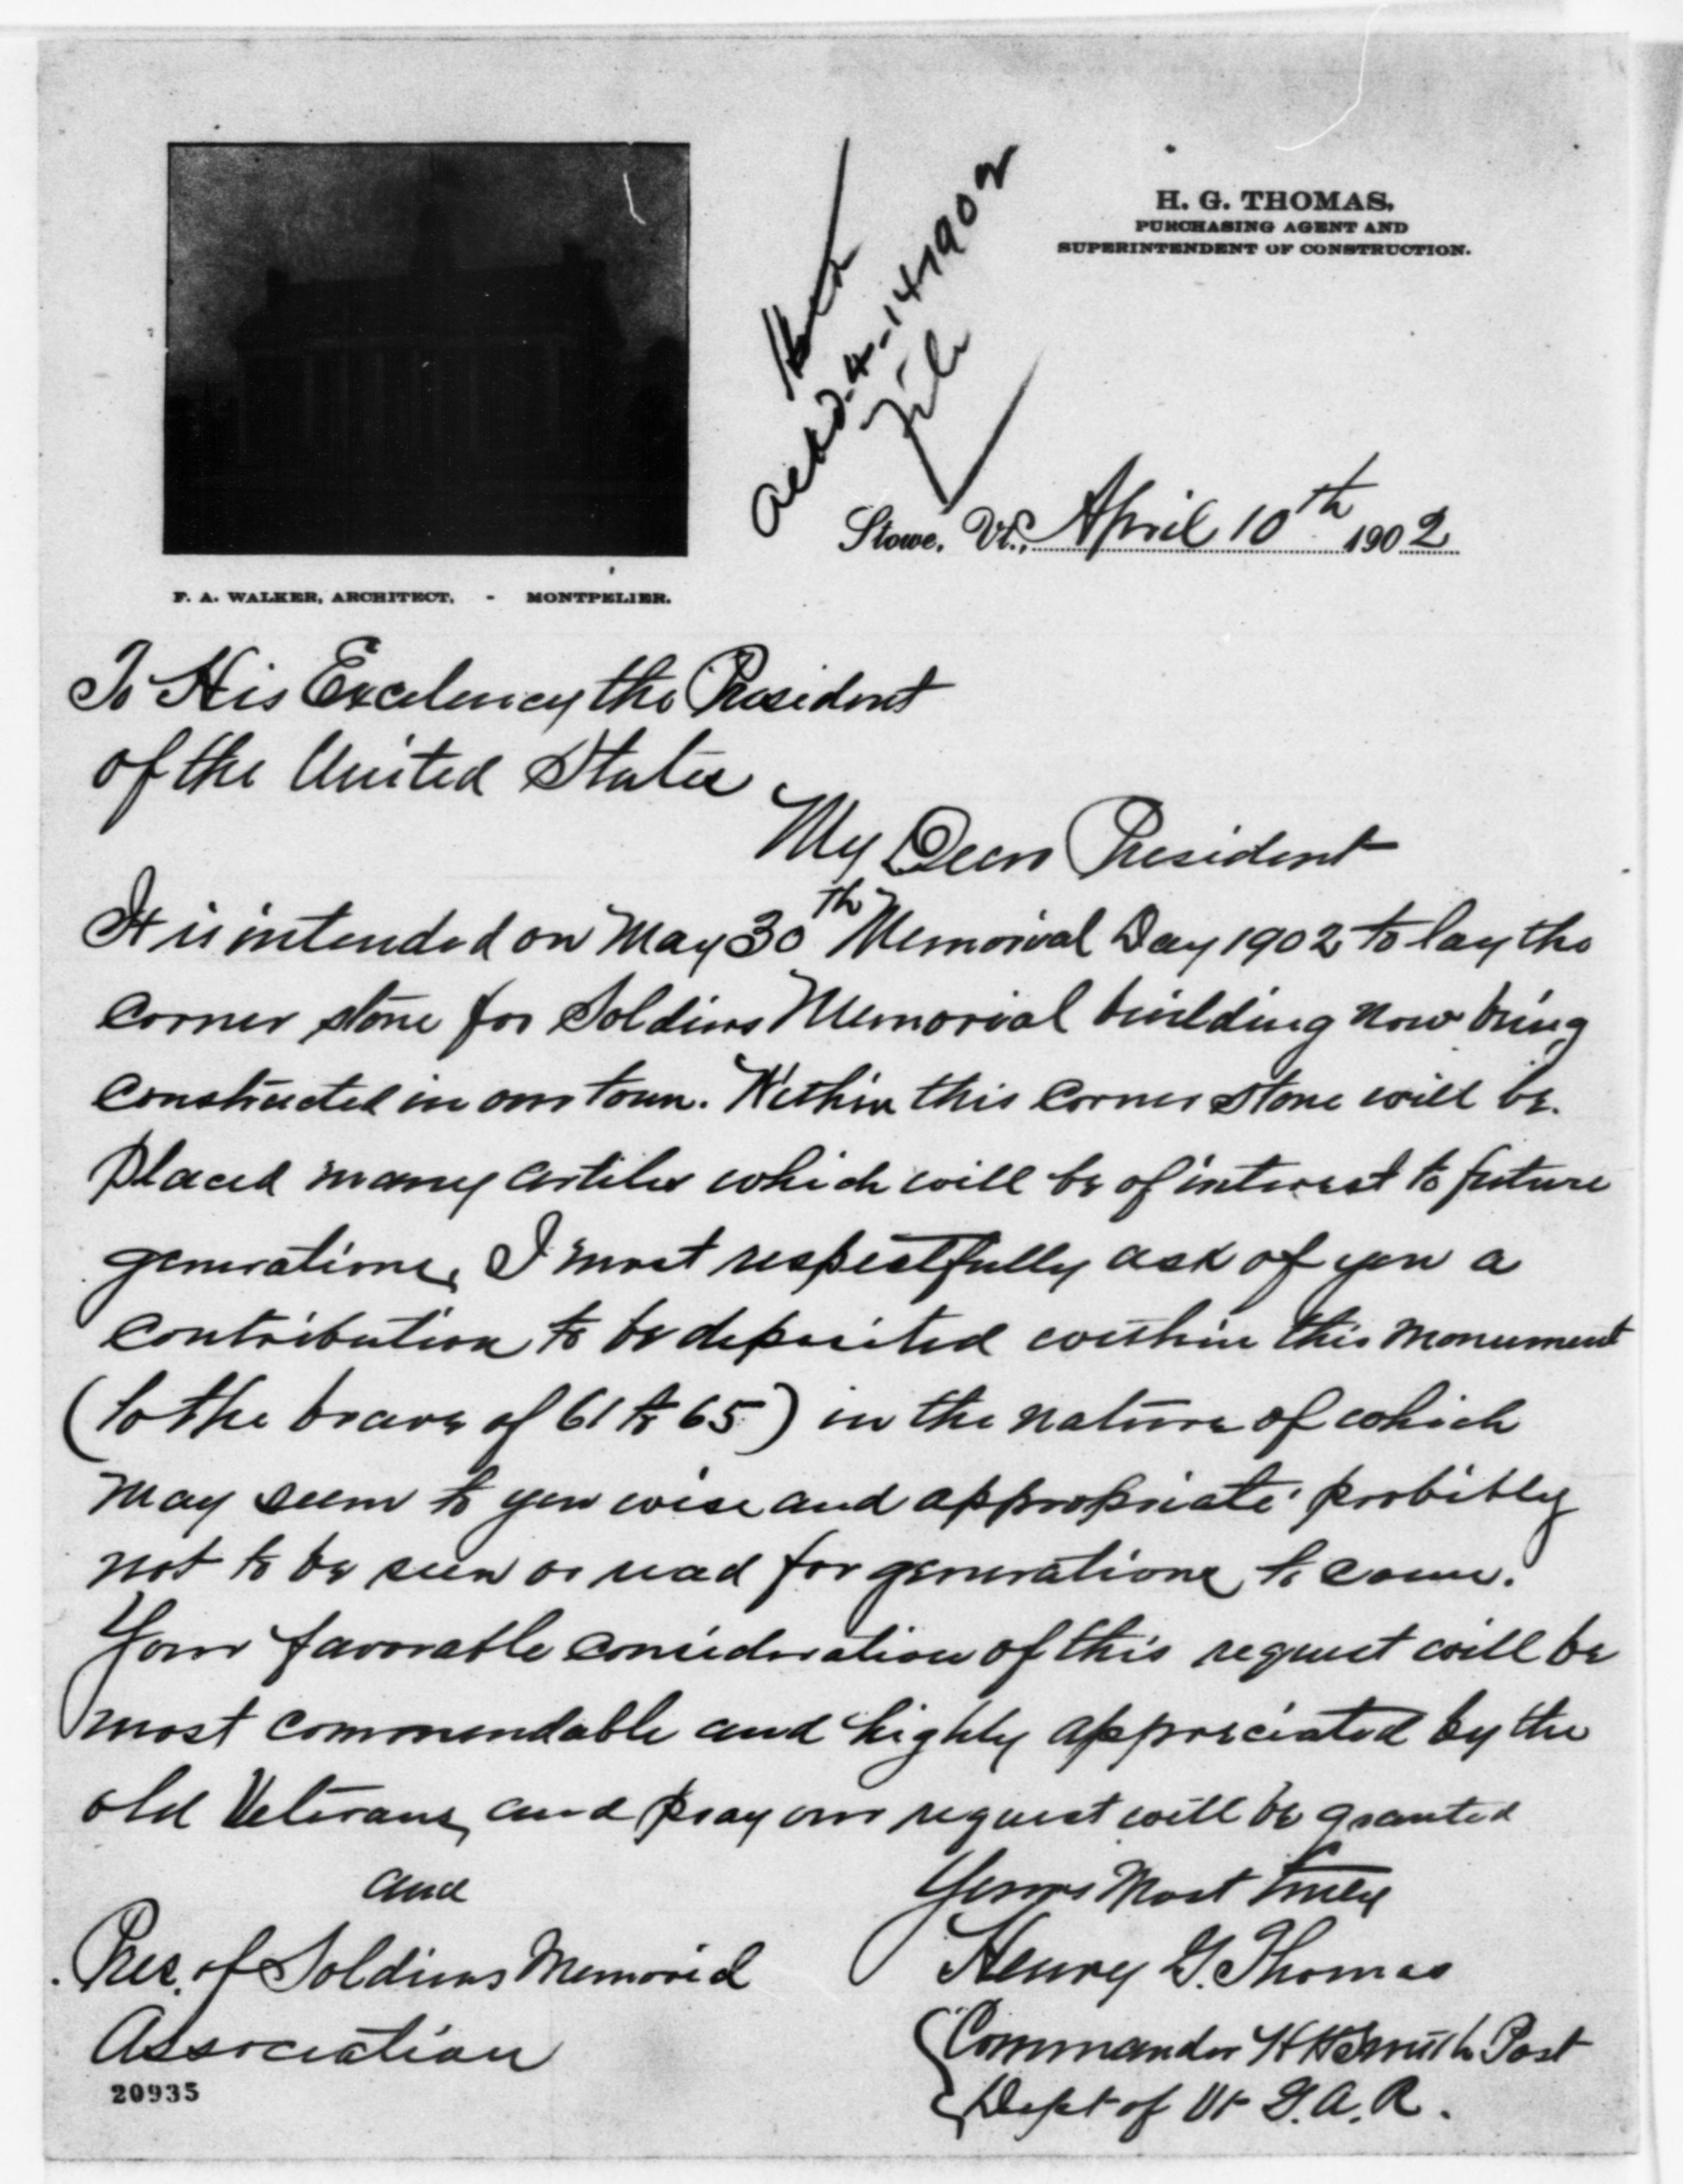 H. G. THOMAS,
PURCHASING AGENT AND
SUPERINTENDENT OF CONSTRUCTION.
Ackd. 4-14-1902
File
Stowe, Vt., April 10th 1902
F. A. WALKER, ARCHITECT, - MONTPELIER.
To His Excelency the President
of the United States
My Dear President
It is intended on May 30th Memorial Day 1902 to lay the
corner stone for Soldiers Memorial building now being
constructed in our town. Within this corner stone will be
placed many artiles which will be of interest to future
generations, I most respectfully ask of you a
contribution to be deposited within this monument
(to the brave of 61 to 65) in the nature of which
may seem to you wise and appropriate probibly
not to be seen or read for generations to come.
Your favorable consideration of this request will be
most commendable and highly appreciated by the
old Veterans, and pray our request will be granted
and
Yours Most Truly
Pres. of Soldiers Memorial
Henry G. Thomas
Association
Commander H H Smith Post
Dept of Vt G. A. R.
20935